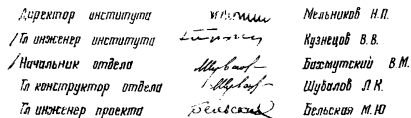 Директор института Мельников Н.П.
Гл инженер института Кузнецов В.В.
Начальник отдела Бахмутский В.М.
Гл конструктор отдела Шувалов Л.К.
Гл инженер проекта Бельская Бельская М.Ю